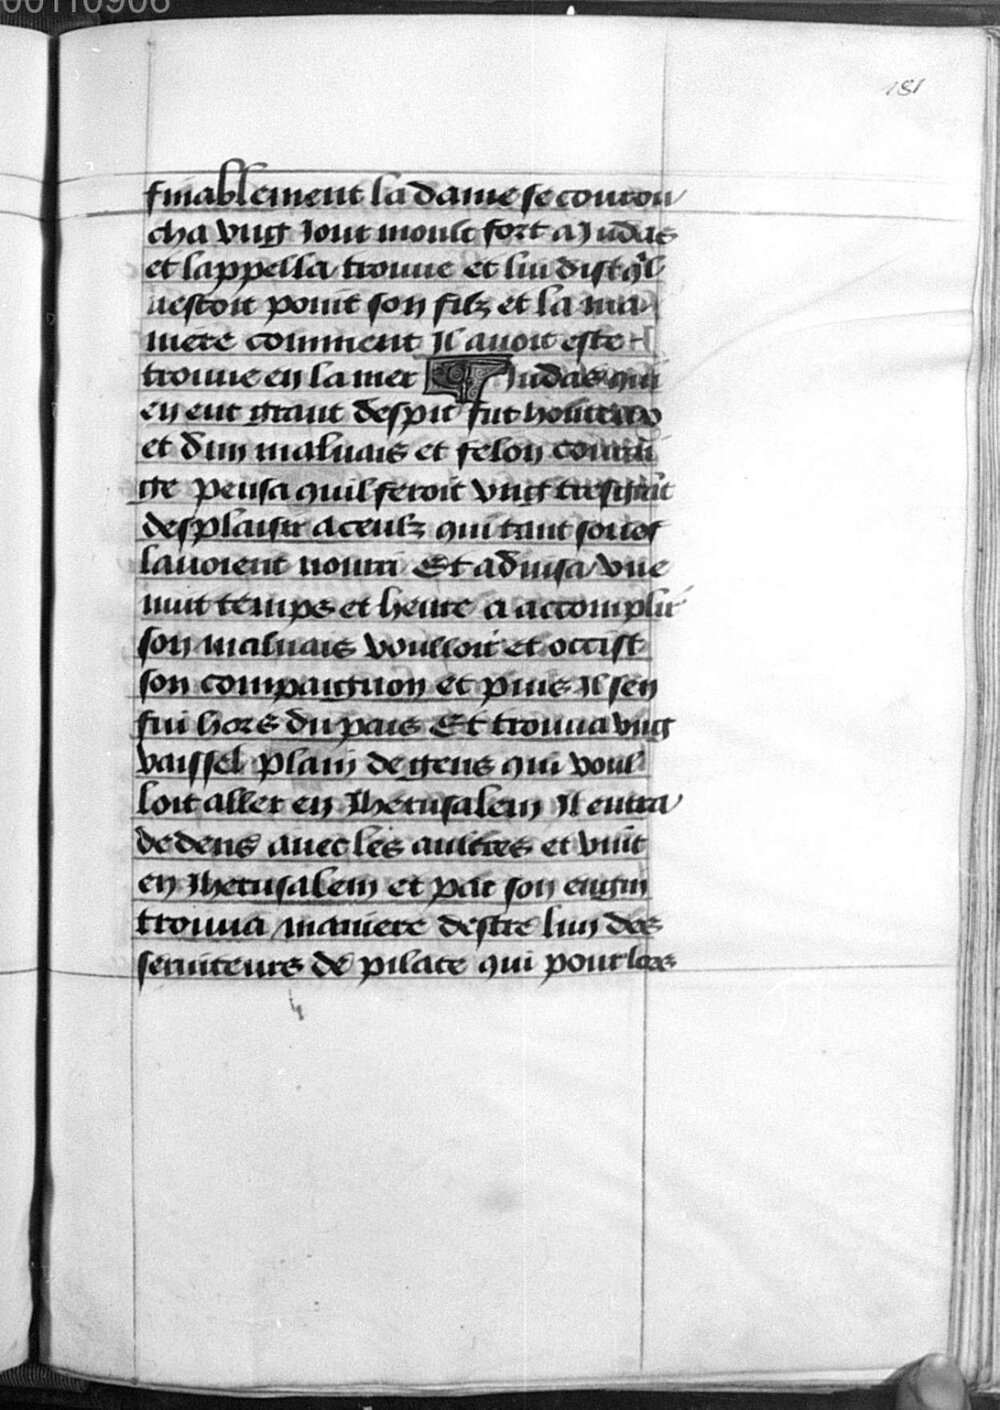 00110908
181
finablement la dame se courou
cha vng iour moult fort a Judas
et lappella trouue et lui dist ql
nestoit point son filz et la ma
niere comment Il auoit este
trouue en la mer Judas qui
en eut grant despit fut honteux
et dun maluais et felon coura
ge pensa quil feroit vng tresgrāt
desplaisir a ceulz qui tant souef
lauoient nourri Et aduisa vne
nuit temps et heure a accomplir
son maluais voulloir et occist
son compaignon et puis Il sen
fui hors du pais Et trouua vng
vaissel plain de gens qui voul
loit aller en Iherusalem Il entra
dedens auec les aultres et vint
en Iherusalem et par son engin
trouua maniere destre lun des
seruiteurs de pilate qui pour lors